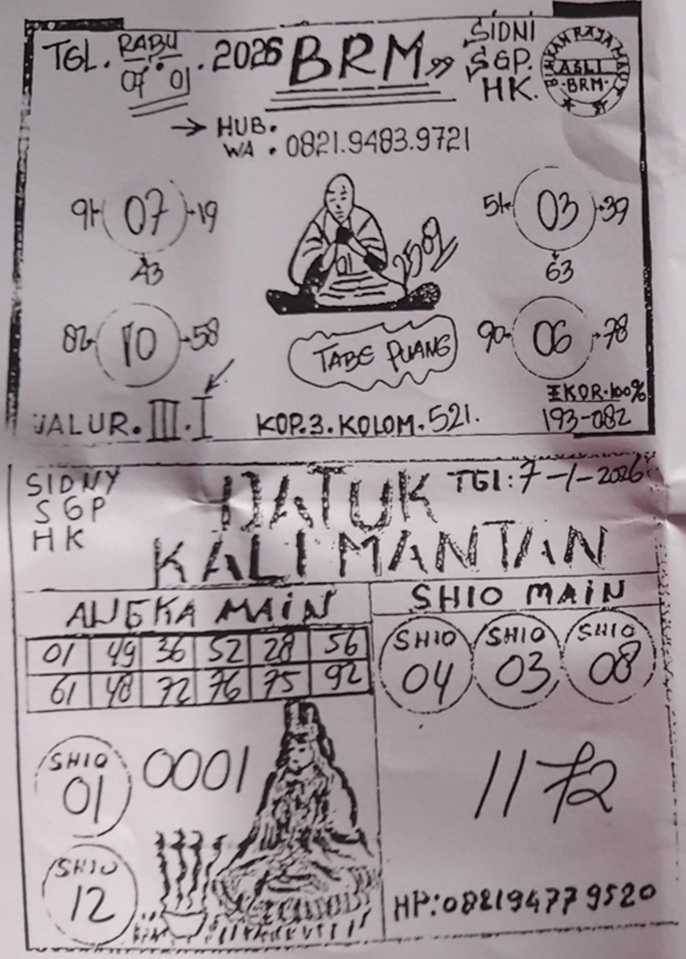 TGL. RABU 07.01.2026 BRM"
SIDNI
SGP.
HK.
ASLI
BRM
→ HUB.
WA . 0821.9483.9721
91 07 19
A3
51 03 39
63
01 2582
82 10 58
TABE PUANG
90 06 78
EKOR.100%
193-082
JALUR.III.I
KOP.3.KOLOM.521.
SIDNY
SGP
HK
DATUK
KALIMANTAN
TGl:7-1-2026
ANGKA MAIN
01 49 36 52 28 56
61 48 72 76 75 92
SHIO MAIN
SHIO 04
SHIO 03
SHIO 08
SHIO 01
0001
1172
SHIO 12
HP:082194779520